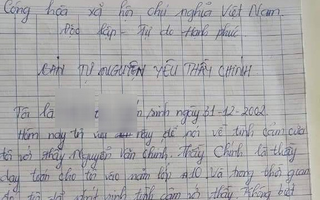 Cộng hòa xã hội chủ nghĩa Việt Nam
Độc lập - Tự do - Hạnh phúc
BẢN TỰ NGUYỆN YÊU THẦY CHÍNH
Tôi là sinh ngày 31-12-2002
Hôm nay tôi viết này để nói về tình cảm của
tôi với thầy Nguyễn Văn Chính. Thầy Chính là thầy
dạy toán cho tôi vào năm lớp 10 và trong thời gian
tình cảm với thầy không biết